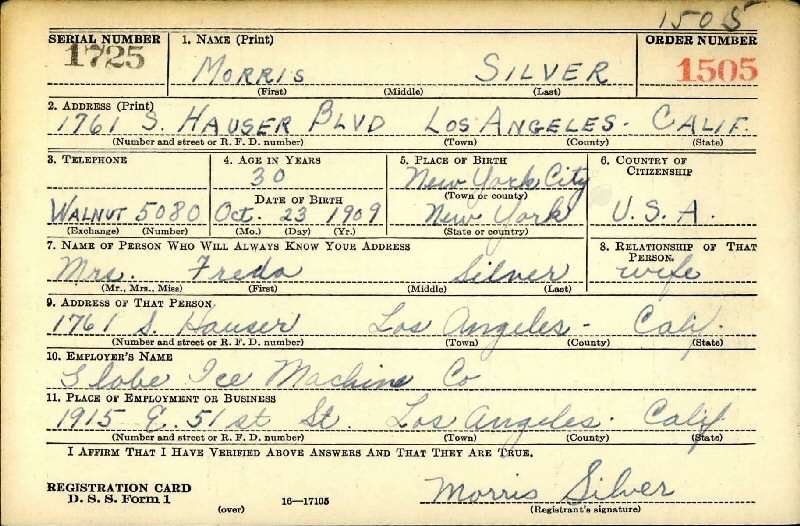 1505
SERIAL NUMBER 1. NAME (Print) ORDER NUMBER
1725 MORRIS SILVER 1505
(First) (Middle) (Last)
2. ADDRESS (Print)
1761 S. HAUSER BLVD LOS ANGELES - CALIF.
(Number and street or R. F. D. number) (Town) (County) (State)
3. TELEPHONE 4. AGE IN YEARS 5. PLACE OF BIRTH 6. COUNTRY OF CITIZENSHIP
30 New York City
DATE OF BIRTH (Town or county)
WALNUT 5080 Oct. 23 1909 New York U.S.A.
(Exchange) (Number) (Mo.) (Day) (Yr.) (State or country)
7. NAME OF PERSON WHO WILL ALWAYS KNOW YOUR ADDRESS 8. RELATIONSHIP OF THAT PERSON
Mrs. Freda Silver wife
(Mr., Mrs., Miss) (First) (Middle) (Last)
9. ADDRESS OF THAT PERSON
1761 S. Hauser Los Angeles - Calif.
(Number and street or R. F. D. number) (Town) (County) (State)
10. EMPLOYER'S NAME
Globe Ice Machine Co
11. PLACE OF EMPLOYMENT OR BUSINESS
1915 E. 51st St. Los Angeles. Calif
(Number and street or R. F. D. number) (Town) (County) (State)
I AFFIRM THAT I HAVE VERIFIED ABOVE ANSWERS AND THAT THEY ARE TRUE.
REGISTRATION CARD Morris Silver
D. S. S. Form 1 (over) 16—17105 (Registrant's signature)